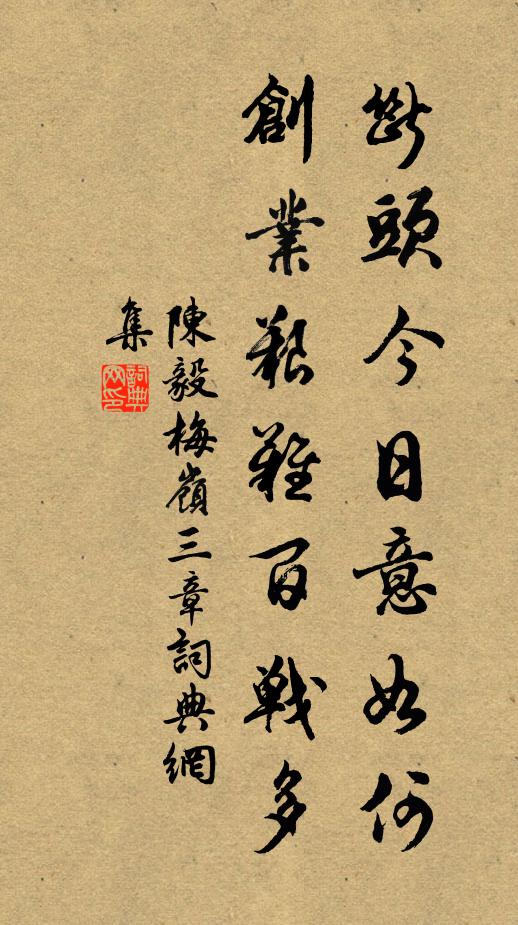 斷頭今日意如何
創業艱難百戰多
陳毅梅嶺三章詞典網
集
詞典網印